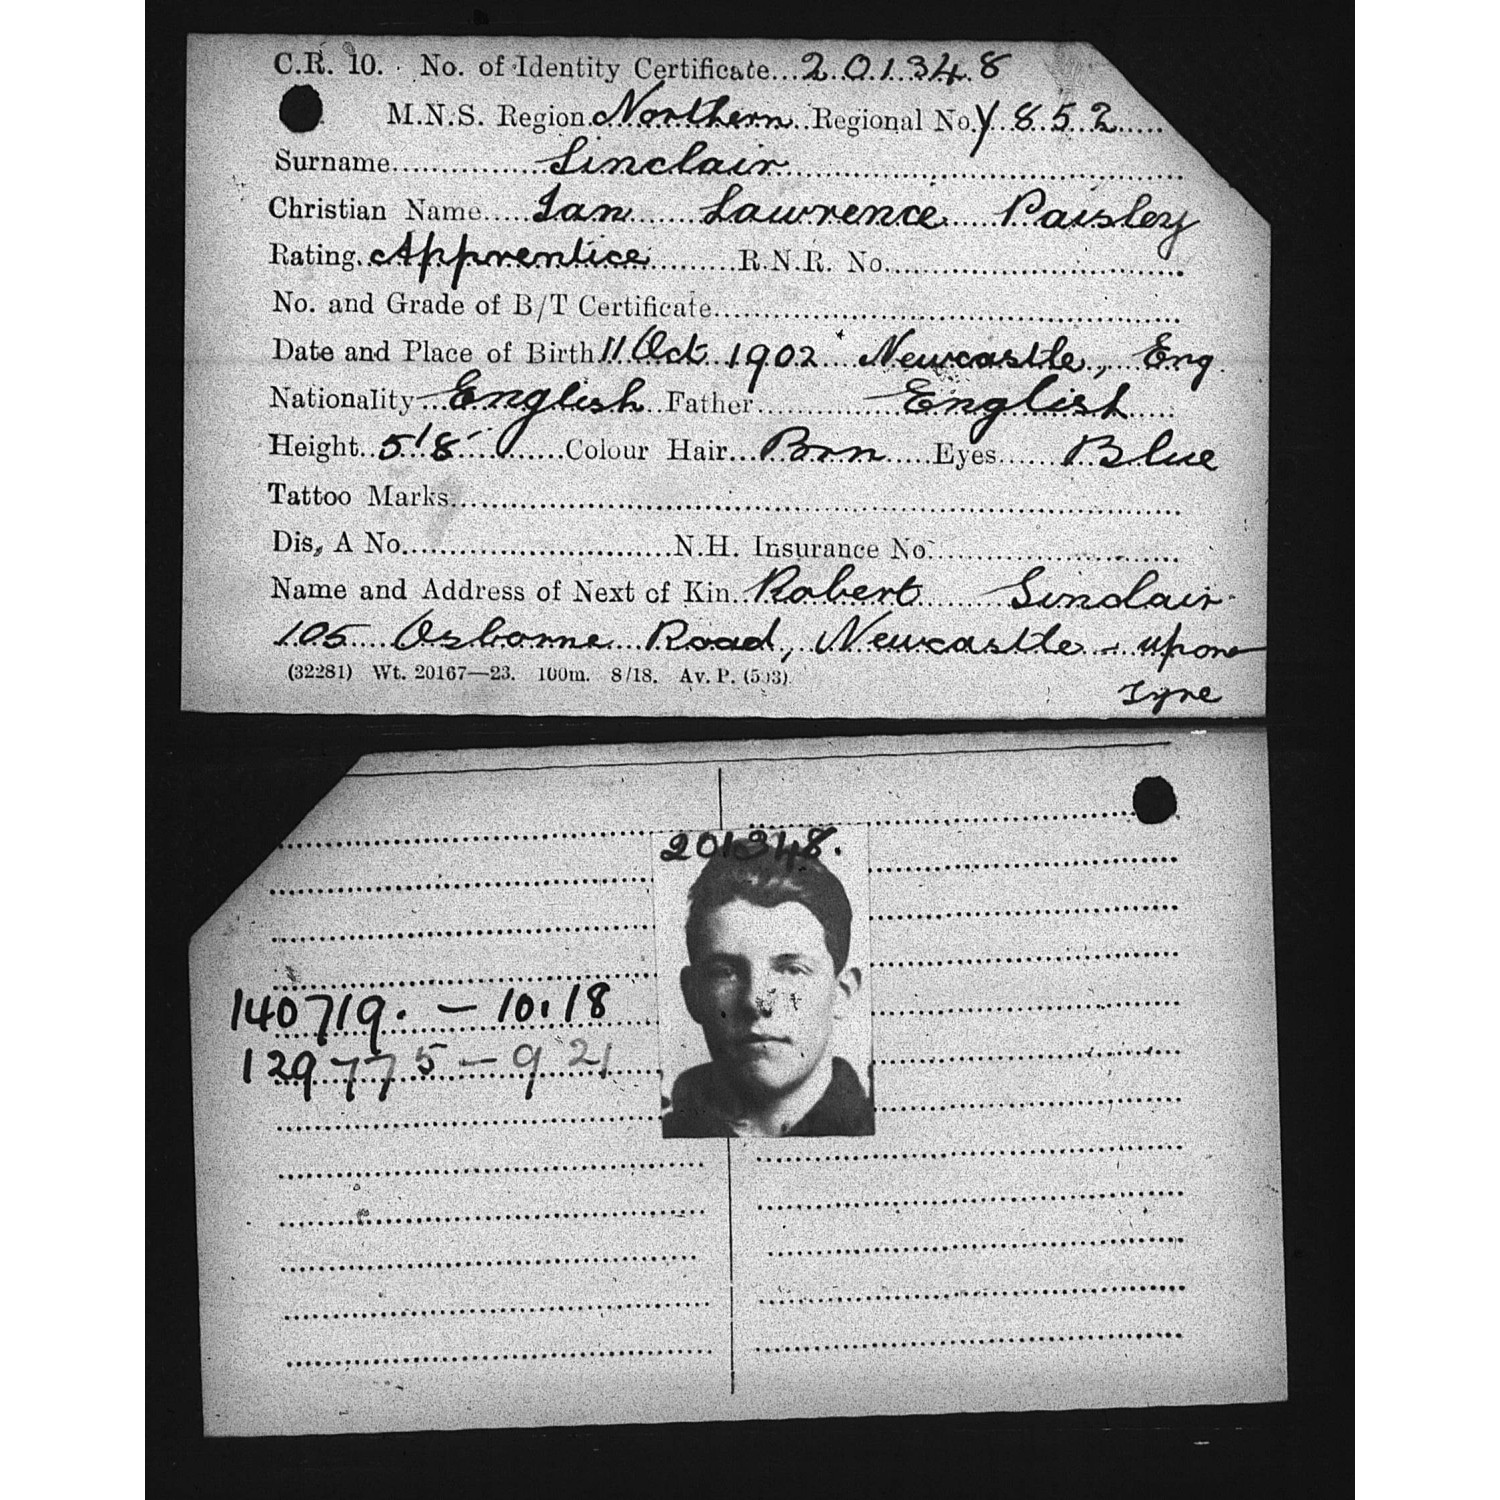 C.R. 10. No. of Identity Certificate...201348
M.N.S. Region Northern Regional No. Y852
Surname Sinclair
Christian Name Ian Lawrence Paisley
Rating. Apprentice R.N.R. No.
No. and Grade of B/T Certificate
Date and Place of Birth 11 Oct 1902 Newcastle, Eng.
Nationality English Father English
Height 5'8" Colour Hair Brn Eyes Blue
Tattoo Marks
Dis. A No. N.H. Insurance No.
Name and Address of Next of Kin Robert Sinclair
105 Osborne Road, Newcastle-upon
Tyne
(32281) Wt. 20167—23. 100m. 8/18. Av. P. (503)
201348.
140719. - 10.18
129775 - 9 21